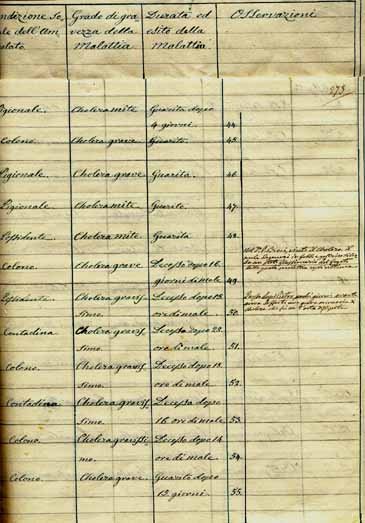 ndizione So Grado di gra Durata ed Osservazioni
le dell'Am vezza della esito della
lato. Malattia Malattia
273
Pigionale. Cholera mite Guarita dopo
4 giorni. 44
Colono. Cholera grave Guarito. 45
Pigionale. Cholera grave Guarita. 46
Pigionale. Cholera mite Guarito. 47
Possidente. Cholera mite Guarita. 48
Colono. Cholera grave Decesso dopo 16
giorni di male 49
Possidente. Cholera gravis Decesso dopo 13
simo. ore di male. 50.
Contadina Cholera gravis Decessa dopo 23.
simo. ore di male 51.
Colono. Cholera gravis Decesso dopo 13.
simo. ore di male 52.
Contadina Cholera gravis Decessa dopo
simo. 16 ore di male 53.
Colono. Cholera gravissi Decesso dopo 14
mo. ore di male. 54.
Colono. Cholera grave. Guarito dopo
12 giorni. 55.